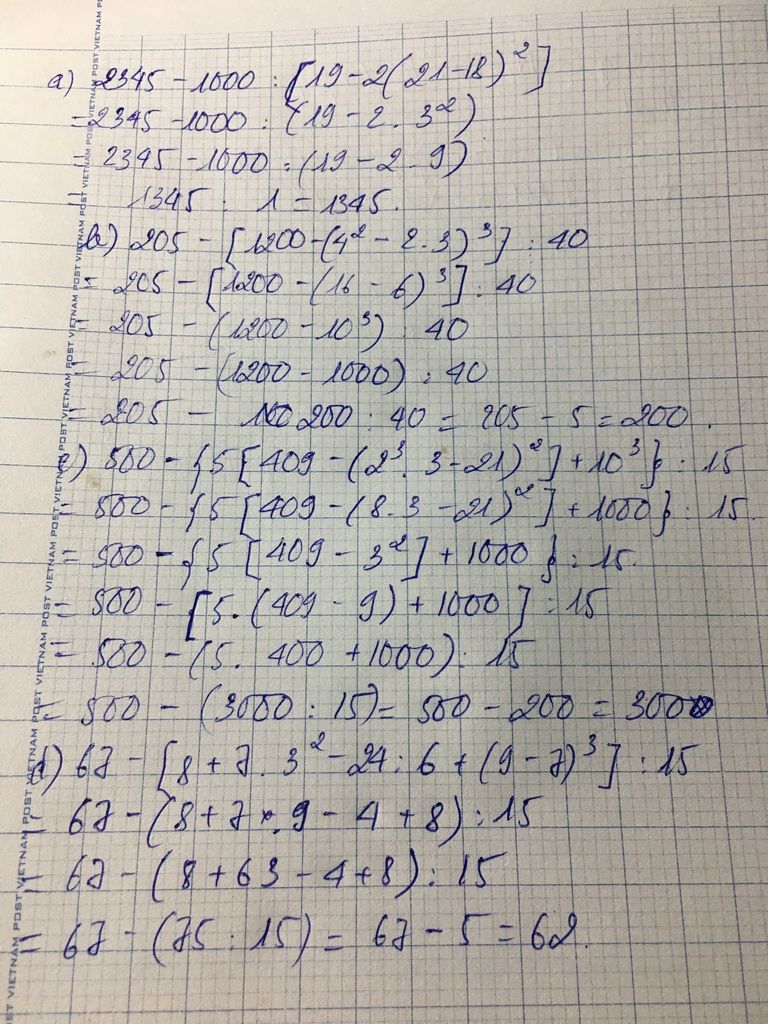 a) 2345 - 1000 : [19 - 2(21-18)²]
= 2345 - 1000 : (19 - 2 . 3²)
= 2345 - 1000 : (19 - 2 . 9)
= 1345 : 1 = 1345.
b) 205 - [1200 - (4² - 2 . 3)³] : 40
= 205 - [1200 - (16 - 6)³] : 40
= 205 - (1200 - 10³) : 40
= 205 - (1200 - 1000) : 40
= 205 - 200 : 40 = 205 - 5 = 200.
c) 500 - {5[409 - (2³ . 3 - 21)²] + 10³} : 15
= 500 - {5[409 - (8 . 3 - 21)²] + 1000} : 15.
= 500 - {5[409 - 3²] + 1000} : 15.
= 500 - [5 . (409 - 9) + 1000] : 15
= 500 - (5 . 400 + 1000) : 15
= 500 - (3000 : 15) = 500 - 200 = 300
d) 67 - [8 + 7 . 3² - 24 : 6 + (9 - 7)³] : 15
= 67 - (8 + 7 . 9 - 4 + 8) : 15
= 67 - (8 + 63 - 4 + 8) : 15
= 67 - (75 : 15) = 67 - 5 = 62.
VIETNAM POST VIETNAM POST VIETNAM POST VIETNAM POST VIETNAM POST VIETNAM POST VIETNAM POST VIETNAM POST VIETNAM POST